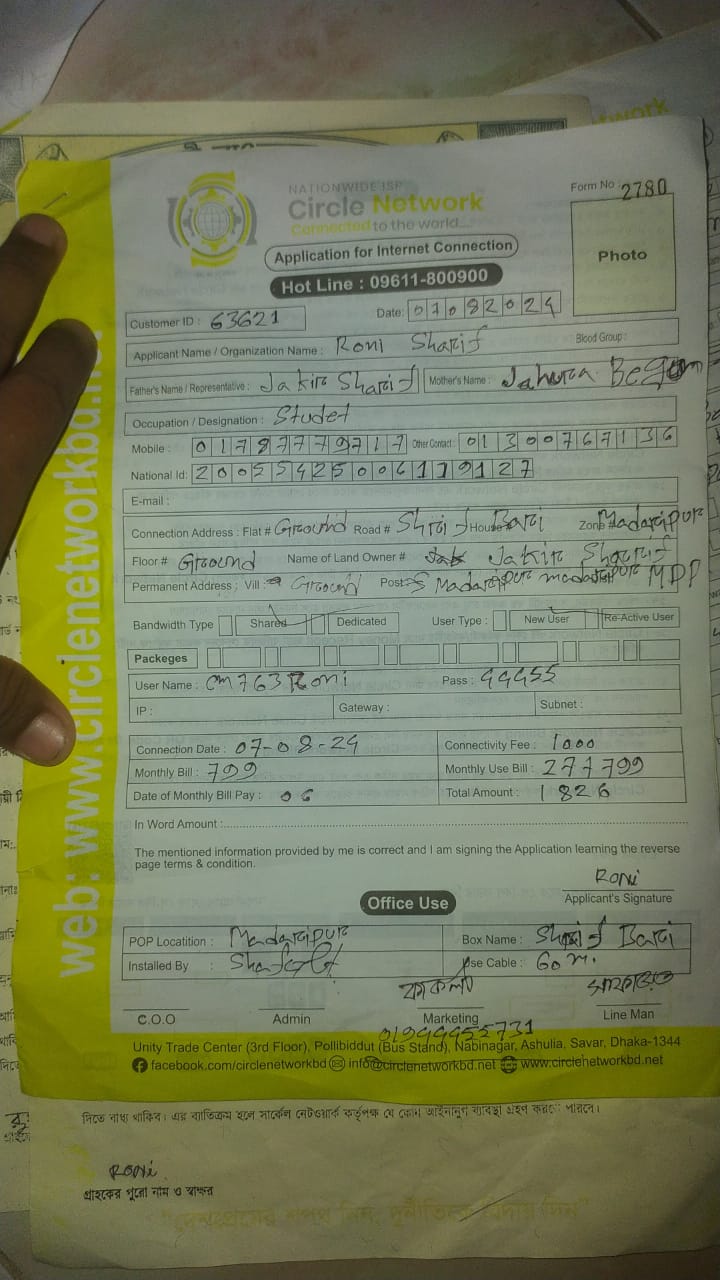 NATIONWIDE ISP
Circle Network
Connected to the world...
Form No : 2780
Photo
Application for Internet Connection
Hot Line : 09611-800900
Customer ID : 63621
Date: 07082024
Applicant Name / Organization Name : Roni Sharif
Blood Group :
Father's Name / Representative : Jakir Sharif Mother's Name : Jahura Begum
Occupation / Designation : Studet
Mobile : 01787779717 Other Contact : 01300767136
National Id: 20055425006119127
E-mail :
Connection Address : Flat # Ground Road # Sharif House # Bari Zone # Madaripur
Floor # Ground Name of Land Owner # Jakir Sharif
Permanent Address : Vill : Ground Post: Madaripur madaripur MDP
Bandwidth Type Shared Dedicated User Type : New User Re-Active User
Packeges
User Name : cm763Roni Pass : 44455
IP : Gateway : Subnet :
Connection Date : 07-08-24 Connectivity Fee : 1000
Monthly Bill : 799 Monthly Use Bill : 277799
Date of Monthly Bill Pay : 06 Total Amount : 1826
In Word Amount :
The mentioned information provided by me is correct and I am signing the Application learning the reverse
page terms & condition.
Roni
Applicant's Signature
Office Use
POP Locatition : Madaripur Box Name : Sharif Bari
Installed By : Use Cable : 60 m.
C.O.O Admin Marketing Line Man
01944455731
Unity Trade Center (3rd Floor), Pollibiddut (Bus Stand), Nabinagar, Ashulia, Savar, Dhaka-1344
facebook.com/circlenetworkbd info@circlenetworkbd.net www.circlenetworkbd.net
web: www.circlenetworkbd.ne
দিতে বাধ্য থাকিব। এর ব্যতিক্রম হলে সার্কেল নেটওয়ার্ক কর্তৃপক্ষ যে কোন আইনানুগ ব্যবস্থা গ্রহণ করতে পারবে।
Roni
গ্রাহকের পুরো নাম ও স্বাক্ষর
"দেশপ্রেমের শপথ নিন, দুর্নীতিকে বিদায় দিন"